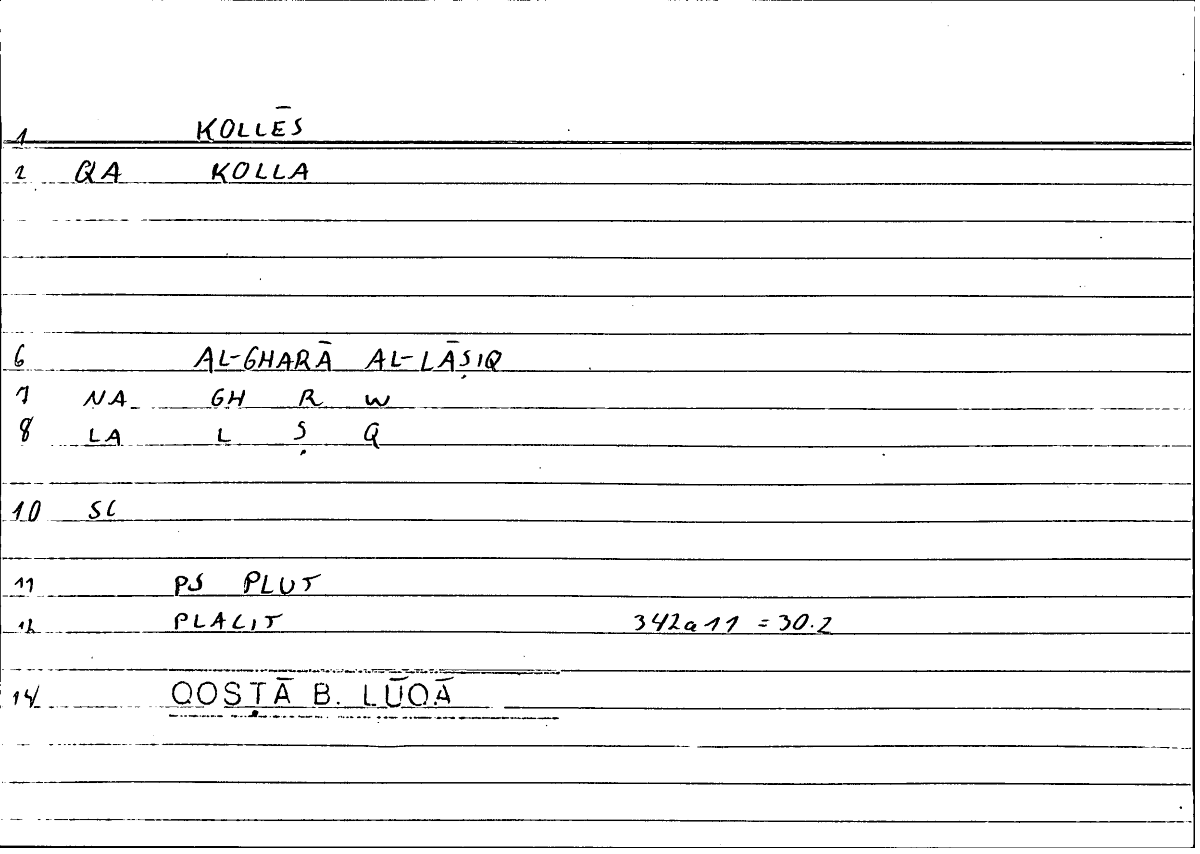 1 KOLLĒS
2 QA KOLLA
6 AL-GHARĀ AL-LĀṢIQ
7 NA GH R W
8 LA L Ṣ Q
10 SL
11 PS PLUT
12 PLACIT 342a11 = 30.2
14 QOSṬĀ B. LŪQĀ